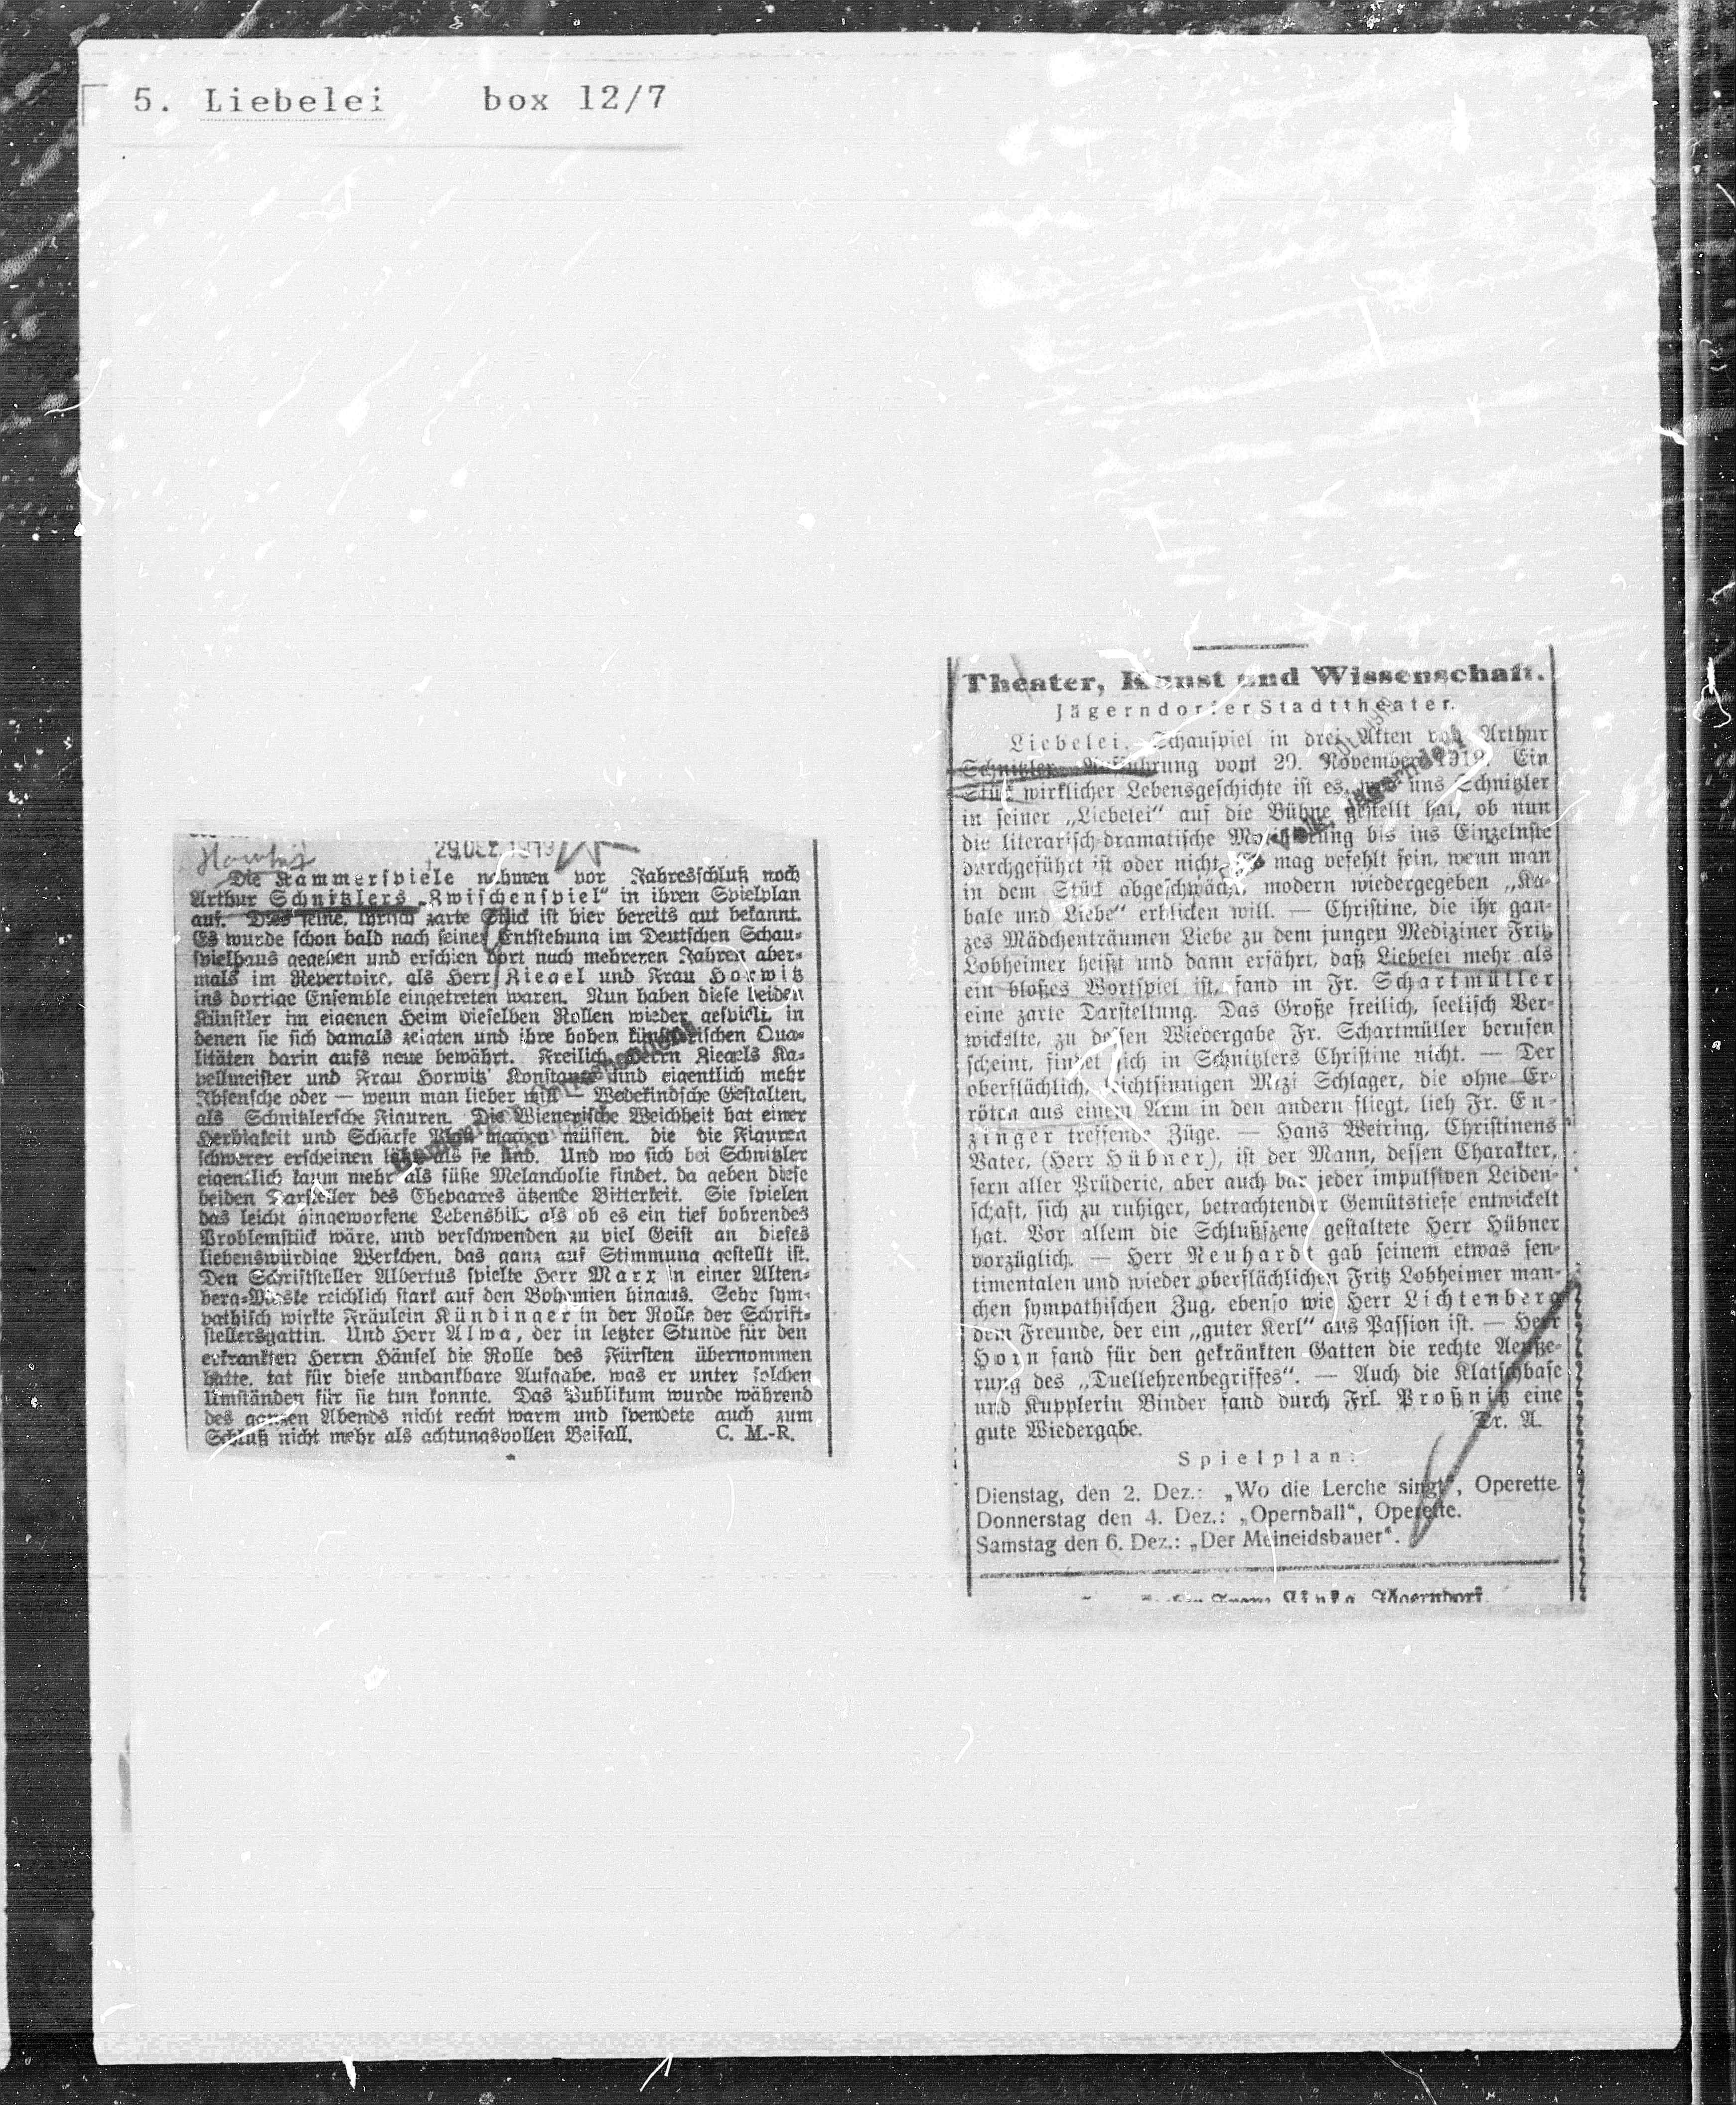 5. Liebelei box 12/7
29. DEZ. 1919
Die Kammerspiele nahmen vor Jahresschluß noch
Arthur Schnitzlers „Zwischenspiel“ in ihren Spielplan
auf. Das feine, lyrisch zarte Stück ist hier bereits gut bekannt.
Es wurde schon bald nach seiner Entstehung im Deutschen Schau-
spielhaus gegeben und erschien dort nach mehreren Jahren aber-
mals im Repertoire, als Herr Ziegel und Frau Horwitz
ins dortige Ensemble eingetreten waren. Nun haben diese beiden
Künstler im eigenen Heim dieselben Rollen wieder gespielt, in
denen sie sich damals zeigten und ihre hohen künstlerischen Qua-
litäten darin aufs neue bewährt. Freilich, Herrn Ziegels Ka-
pellmeister und Frau Horwitz' Konstanze sind eigentlich mehr
Ibsensche oder — wenn man lieber will — Wedekindsche Gestalten,
als Schnitzlersche Figuren. Die Wienerische Weichheit hat einer
Herbigkeit und Schärfe Platz machen müssen, die die Figuren
schwerer erscheinen läßt als sie sind. Und wo sich bei Schnitzler
eigentlich kaum mehr als süße Melancholie findet, da geben diese
beiden Darsteller des Ehepaares ätzende Bitterkeit. Sie spielen
das leicht hingeworfene Lebensbild, als ob es ein tief bohrendes
Problemstück wäre, und verschwenden zu viel Geist an dieses
liebenswürdige Werkchen, das ganz auf Stimmung gestellt ist.
Den Schriftsteller Albertus spielte Herr Marx in einer Alten-
berg-Maske reichlich stark auf den Bohemien hinaus. Sehr sym-
pathisch wirkte Fräulein Kündinger in der Rolle der Schrift-
stellersgattin. Und Herr Alwa, der in letzter Stunde für den
erkrankten Herrn Hänsel die Rolle des Fürsten übernommen
hatte, tat für diese undankbare Aufgabe, was er unter solchen
Umständen für sie tun konnte. Das Publikum wurde während
des ganzen Abends nicht recht warm und spendete auch zum
Schluß nicht mehr als achtungsvollen Beifall. C. M.-R.
Theater, Kunst und Wissenschaft.
Jägerndorfer Stadttheater.
Liebelei. Schauspiel in drei Akten von Arthur
Schnitzler. Aufführung vom 29. November 1919. Ein
Stück wirklicher Lebensgeschichte ist es, was uns Schnitzler
in seiner „Liebelei“ auf die Bühne gestellt hat, ob nun
die literarisch-dramatische bis ins Einzelnste
durchgeführt ist oder nicht. Es mag verfehlt sein, wenn man
in dem Stück abgeschwächt, modern wiedergegeben „Ka-
bale und Liebe“ erblicken will. — Christine, die ihr gan-
zes Mädchenträumen Liebe zu dem jungen Mediziner Fritz
Lobheimer heißt und dann erfährt, daß Liebelei mehr als
ein bloßes Wortspiel ist, fand in Fr. Schartmüller
eine zarte Darstellung. Das Große freilich, seelisch Ver-
wickelte, zu dessen Wiedergabe Fr. Schartmüller berufen
scheint, findet sich in Schnitzlers Christine nicht. — Der
oberflächlich, leichtsinnigen Mizi Schlager, die ohne Er-
röten aus einem Arm in den andern fliegt, lieh Fr. En-
zinger treffende Züge. — Hans Weiring, Christinens
Vater, (Herr Hübner), ist der Mann, dessen Charakter,
fern aller Prüderie, aber auch bar jeder impulsiven Leiden-
schaft, sich zu ruhiger, betrachtender Gemütstiefe entwickelt
hat. Vor allem die Schlußszene gestaltete Herr Hübner
vorzüglich. — Herr Neuhardt gab seinem etwas sen-
timentalen und wieder oberflächlichen Fritz Lobheimer man-
chen sympathischen Zug, ebenso wie Herr Lichtenberg
dem Freunde, der ein „guter Kerl“ aus Passion ist. — Herr
Horn fand für den gekränkten Gatten die rechte Aeuße-
rung des „Duellehrenbegriffes“. — Auch die Klatschbase
und Kupplerin Binder fand durch Frl. Proßnitz eine
gute Wiedergabe. Dr. A.
Spielplan:
Dienstag, den 2. Dez.: „Wo die Lerche singt“, Operette
Donnerstag den 4. Dez.: „Opernball“, Operette.
Samstag den 6. Dez.: „Der Meineidsbauer“.
Jägerndorf